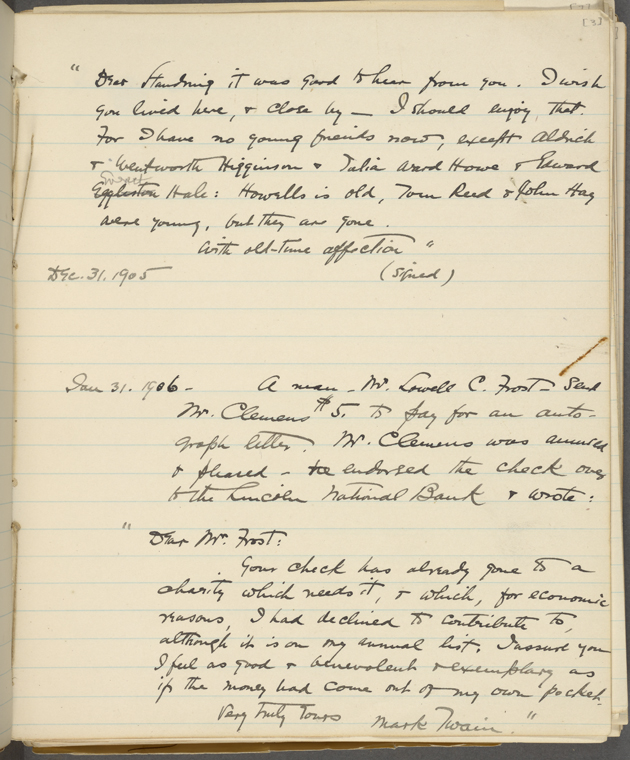 [3]
" Dear Standring it was good to hear from you. I wish
you lived here, & close by — I should enjoy that.
For I have no young friends now, except Aldrich
& Wentworth Higginson & Julia Ward Howe & Edward
Everett
Eggleston Hale: Howells is old, Tom Reed & John Hay
were young, but they are gone.
With old-time affection "
Dec. 31. 1905 (signed)
Jan 31. 1906 - A man - Mr. Lowell C. Frost - Send
Mr. Clemens $5. to pay for an auto-
graph letter. Mr. Clemens was amused
& pleased - he endorsed the check over
to the Lincoln National Bank & wrote:
" Dear Mr. Frost:
Your check has already gone to a
charity which needs it, & which, for economic
reasons, I had declined to contribute to,
although it is on my annual list. I assure you
I feel as good & benevolent & exemplary as
if the money had come out of my own pocket.
Very truly yours Mark Twain. "